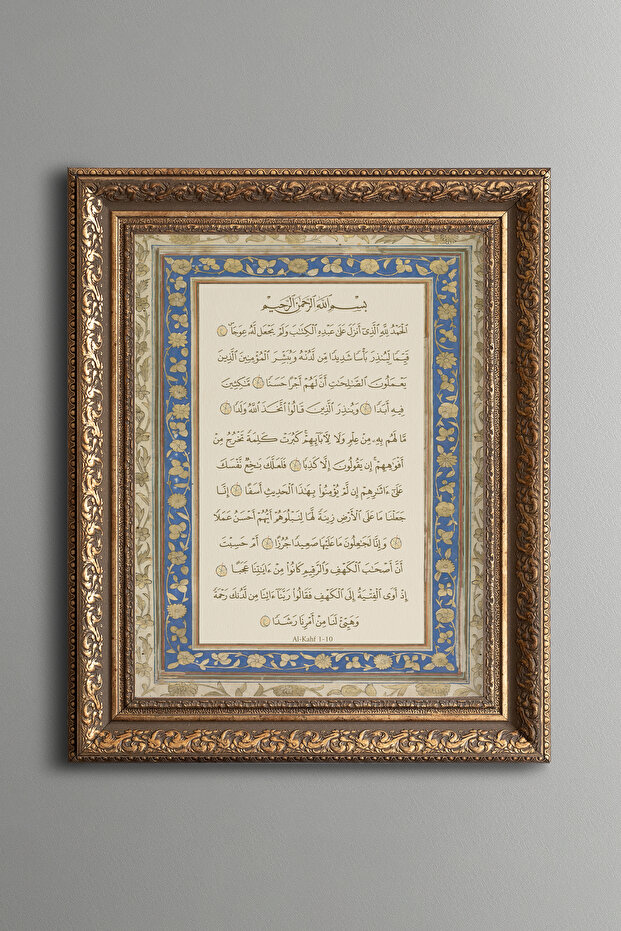 بِسْمِ اللَّهِ الرَّحْمَٰنِ الرَّحِيمِ
الْحَمْدُ لِلَّهِ الَّذِي أَنزَلَ عَلَىٰ عَبْدِهِ الْكِتَابَ وَلَمْ يَجْعَل لَّهُ عِوَجًا
قَيِّمًا لِّيُنذِرَ بَأْسًا شَدِيدًا مِّن لَّدُنْهُ وَيُبَشِّرَ الْمُؤْمِنِينَ الَّذِينَ
يَعْمَلُونَ الصَّالِحَاتِ أَنَّ لَهُمْ أَجْرًا حَسَنًا مَّاكِثِينَ
فِيهِ أَبَدًا وَيُنذِرَ الَّذِينَ قَالُوا اتَّخَذَ اللَّهُ وَلَدًا
مَّا لَهُم بِهِ مِنْ عِلْمٍ وَلَا لِآبَائِهِمْ كَبُرَتْ كَلِمَةً تَخْرُجُ مِنْ
أَفْوَاهِهِمْ إِن يَقُولُونَ إِلَّا كَذِبًا فَلَعَلَّكَ بَاخِعٌ نَّفْسَكَ
عَلَىٰ آثَارِهِمْ إِن لَّمْ يُؤْمِنُوا بِهَٰذَا الْحَدِيثِ أَسَفًا إِنَّا
جَعَلْنَا مَا عَلَى الْأَرْضِ زِينَةً لَّهَا لِنَبْلُوَهُمْ أَيُّهُمْ أَحْسَنُ عَمَلًا
وَإِنَّا لَجَاعِلُونَ مَا عَلَيْهَا صَعِيدًا جُرُزًا أَمْ حَسِبْتَ
أَنَّ أَصْحَابَ الْكَهْفِ وَالرَّقِيمِ كَانُوا مِنْ آيَاتِنَا عَجَبًا
إِذْ أَوَى الْفِتْيَةُ إِلَى الْكَهْفِ فَقَالُوا رَبَّنَا آتِنَا مِن لَّدُنكَ رَحْمَةً
وَهَيِّئْ لَنَا مِنْ أَمْرِنَا رَشَدًا
Al-Kahf 1-10